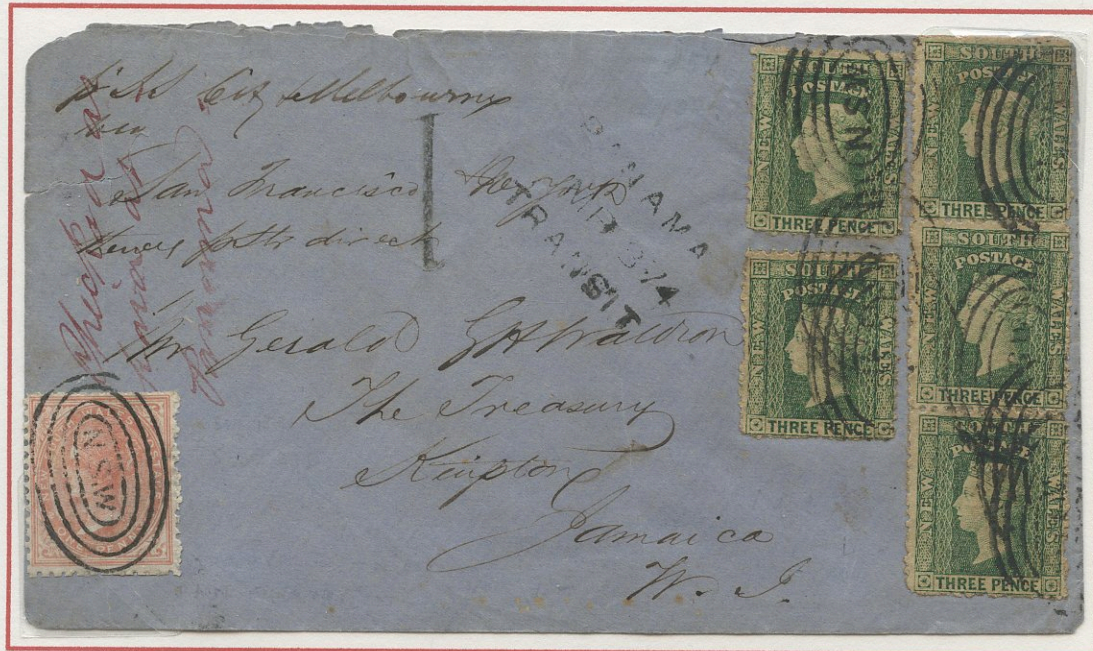 SS City Melbourne
via
San Francisco New York
direct
Mr Gerald G H Waldron
The Treasury
Kingston
Jamaica
W. I.
PANAMA
TRANSIT
NEW SOUTH WALES
POSTAGE
THREE PENCE
NEW SOUTH WALES
POSTAGE
THREE PENCE
NEW SOUTH WALES
POSTAGE
THREE PENCE
NEW SOUTH WALES
POSTAGE
THREE PENCE
NEW SOUTH WALES
POSTAGE
THREE PENCE
NSW
NSW
Panama